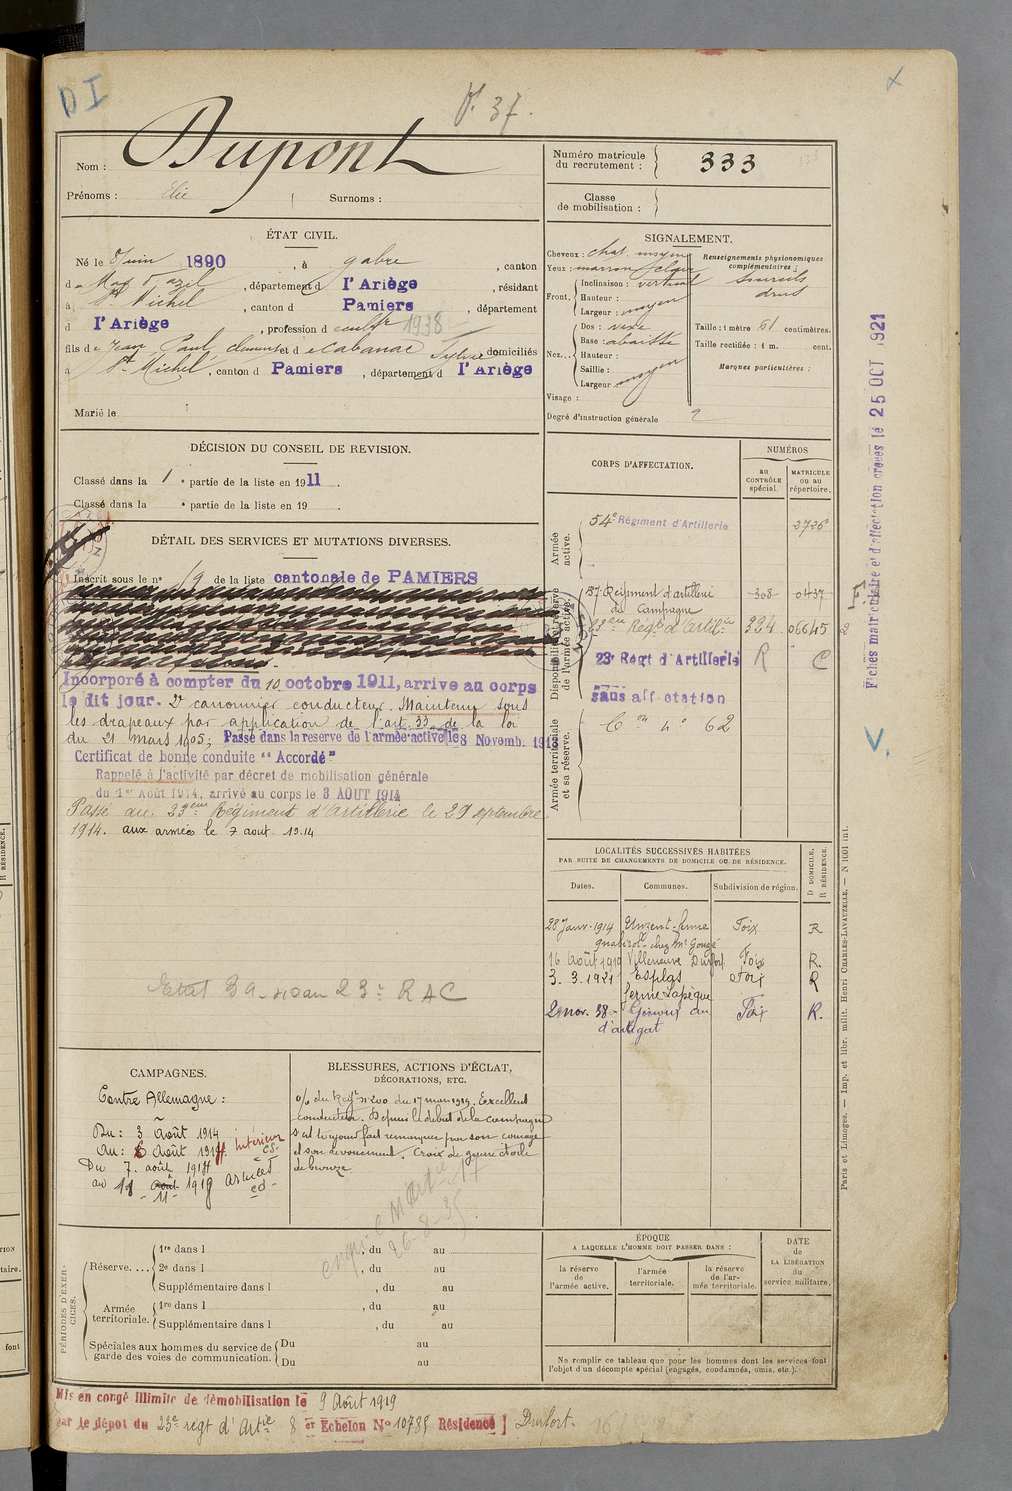 D I
37.
Nom : Dupont
Prénoms : Elie Surnoms :
Numéro matricule du recrutement : 333
Classe de mobilisation :
ÉTAT CIVIL.
Né le 8 juin 1890, à Gabre, canton
d Mas d'azil, département d l'Ariège, résidant
à St Michel, canton d Pamiers, département
d l'Ariège, profession d cultr 1938
fils de Jean Paul, Clement et d Cabanac Sylvie domiciliés
à St Michel, canton d Pamiers, département d l'Ariège
Marié le
SIGNALEMENT.
Cheveux : chat. moyen
Yeux : marron clair
Front. Inclinaison : vertical
Hauteur :
Largeur : moyen
Nez... Dos : vexe
Base : abaissée
Hauteur :
Saillie :
Largeur moyen
Visage :
Degré d'instruction générale 2
Renseignements physionomiques complémentaires :
Sourcils
drus
Taille : 1 mètre 61 centimètres.
Taille rectifiée : 1 m. cent.
Marques particulières :
DÉCISION DU CONSEIL DE REVISION.
Classé dans la 1e partie de la liste en 1911.
Classé dans la e partie de la liste en 19 .
DÉTAIL DES SERVICES ET MUTATIONS DIVERSES.
Inscrit sous le n° 19 de la liste cantonale de PAMIERS
Incorporé à compter du 10 octobre 1911, arrive au corps
le dit jour. 2e canonnier conducteur. Maintenu sous
les drapeaux par application de l'art. 33 de la loi
du 21 mars 1905; Passé dans la reserve de l'armée active le 8 Novemb. 191
Certificat de bonne conduite "Accordé"
Rappelé à l'activité par décret de mobilisation générale
du 1er Août 1914, arrivé au corps le 3 AOUT 1914
Passé au 23eme Régiment d'artillerie le 29 septembre
1914. aux armées le 7 aout 1914
23e R A C
CORPS D'AFFECTATION.
NUMÉROS
au CONTRÔLE spécial.
MATRICULE ou au répertoire.
Armée active.
54e Régiment d'Artillerie 2726
Disponibilité et réserve de l'armée active.
57 Régiment d'artillerie 308 0437
de Campagne
23eme Régt d'Artillie 334 06645
23e Régt d'Artillerie R C
sans affectation
Armée territoriale et sa réserve.
Con 4° 62
LOCALITÉS SUCCESSIVES HABITÉES
PAR SUITE DE CHANGEMENTS DE DOMICILE OU DE RÉSIDENCE.
Dates. Communes. Subdivision de région. D DOMICILE, R RÉSIDENCE.
28 Janv. 1914 Unzent ferme Foix R
chez Mr
16 Août 1919 Villeneuve Durfort Foix R.
3.3.1921 Esplas Foix R
ferme Lapèque
2 nov. 38 - Foix R.
d'artigat
CAMPAGNES.
Contre Allemagne :
Du : 3 Août 1914
Au : 6 Août 1914 Intérieur
CS
Du 7. août 1914
au 11 Août 1919 armées
11 cd
BLESSURES, ACTIONS D'ÉCLAT,
DÉCORATIONS, ETC.
o/ du Regt n° 200 du 17 mars 1919. Excellent
conducteur. Depuis le début de la campagne
s'est toujours fait remarquer par son courage
et son dévouement. Croix de guerre étoile
de bronze
26-8-35
PÉRIODES D'EXERCICES.
Réserve.... 1re dans l , du au
2e dans l , du au
Supplémentaire dans l , du au
Armée territoriale. 1re dans l , du au
Supplémentaire dans l , du au
Spéciales aux hommes du service de garde des voies de communication. Du au
Du au
ÉPOQUE
A LAQUELLE L'HOMME DOIT PASSER DANS :
la réserve de l'armée active.
l'armée territoriale.
la réserve de l'armée territoriale.
DATE de LA LIBÉRATION du service militaire.
Ne remplir ce tableau que pour les hommes dont les services font
l'objet d'un décompte spécial (engagés, condamnés, omis, etc.).
Mis en congé illimité de démobilisation le 9 Août 1919
par le dépot du 23e régt d'Artie 8er Echelon N° 10785 Résidence Durfort.
Fiches matriculaire et d'affectation créées le 25 OCT 1921
Paris et Limoges. — Imp. et libr. milit. Henri CHARLES-LAVAUZELLE. — N 1001 int.